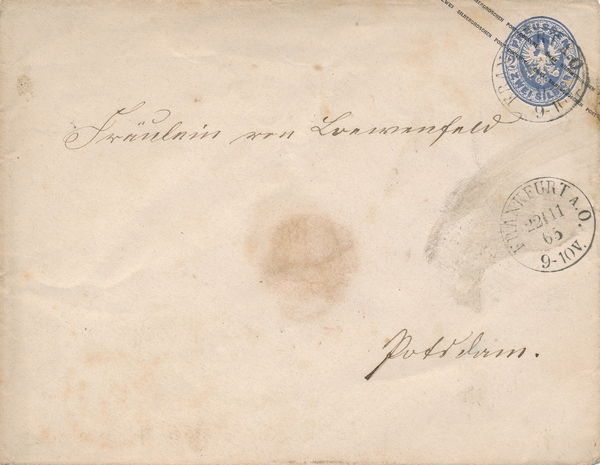 PREUSSEN
Fräulein von Loewenfeld
FRANKFURT A. O.
22 11
65
9-10V.
Potsdam.